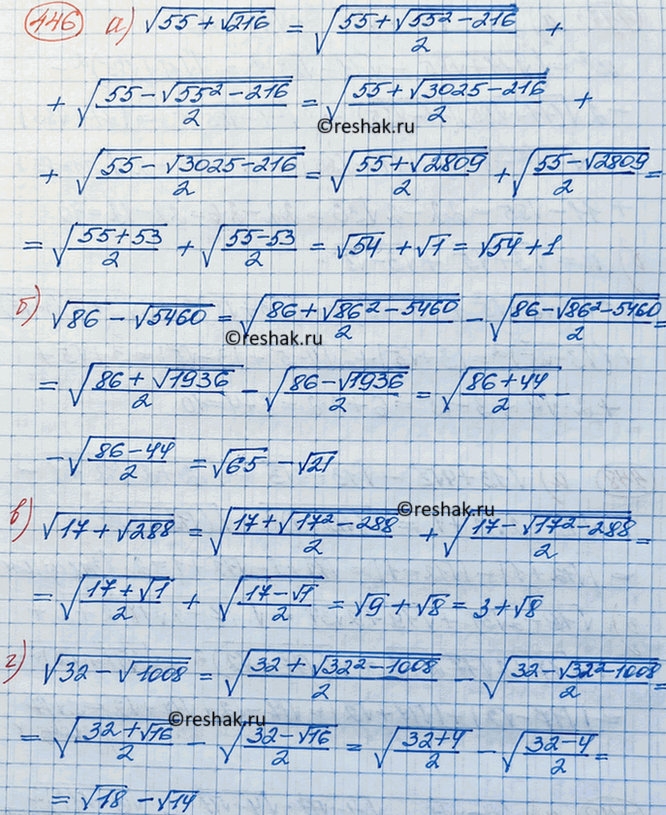 446 а) √(55 + √216) = √((55 + √(55² − 216))/2) +
+ √((55 − √(55² − 216))/2) = √((55 + √(3025 − 216))/2) +
©reshak.ru
+ √((55 − √(3025 − 216))/2) = √((55 + √2809)/2) + √((55 − √2809)/2) =
= √((55 + 53)/2) + √((55 − 53)/2) = √54 + √1 = √54 + 1
б) √(86 − √5460) = √((86 + √(86² − 5460))/2) − √((86 − √(86² − 5460))/2) =
©reshak.ru
= √((86 + √1936)/2) − √((86 − √1936)/2) = √((86 + 44)/2) −
− √((86 − 44)/2) = √65 − √21
©reshak.ru
в) √(17 + √288) = √((17 + √(17² − 288))/2) + √((17 − √(17² − 288))/2) =
= √((17 + √1)/2) + √((17 − √1)/2) = √9 + √8 = 3 + √8
г) √(32 − √1008) = √((32 + √(32² − 1008))/2) − √((32 − √(32² − 1008))/2) =
©reshak.ru
= √((32 + √16)/2) − √((32 − √16)/2) = √((32 + 4)/2) − √((32 − 4)/2) =
= √18 − √14